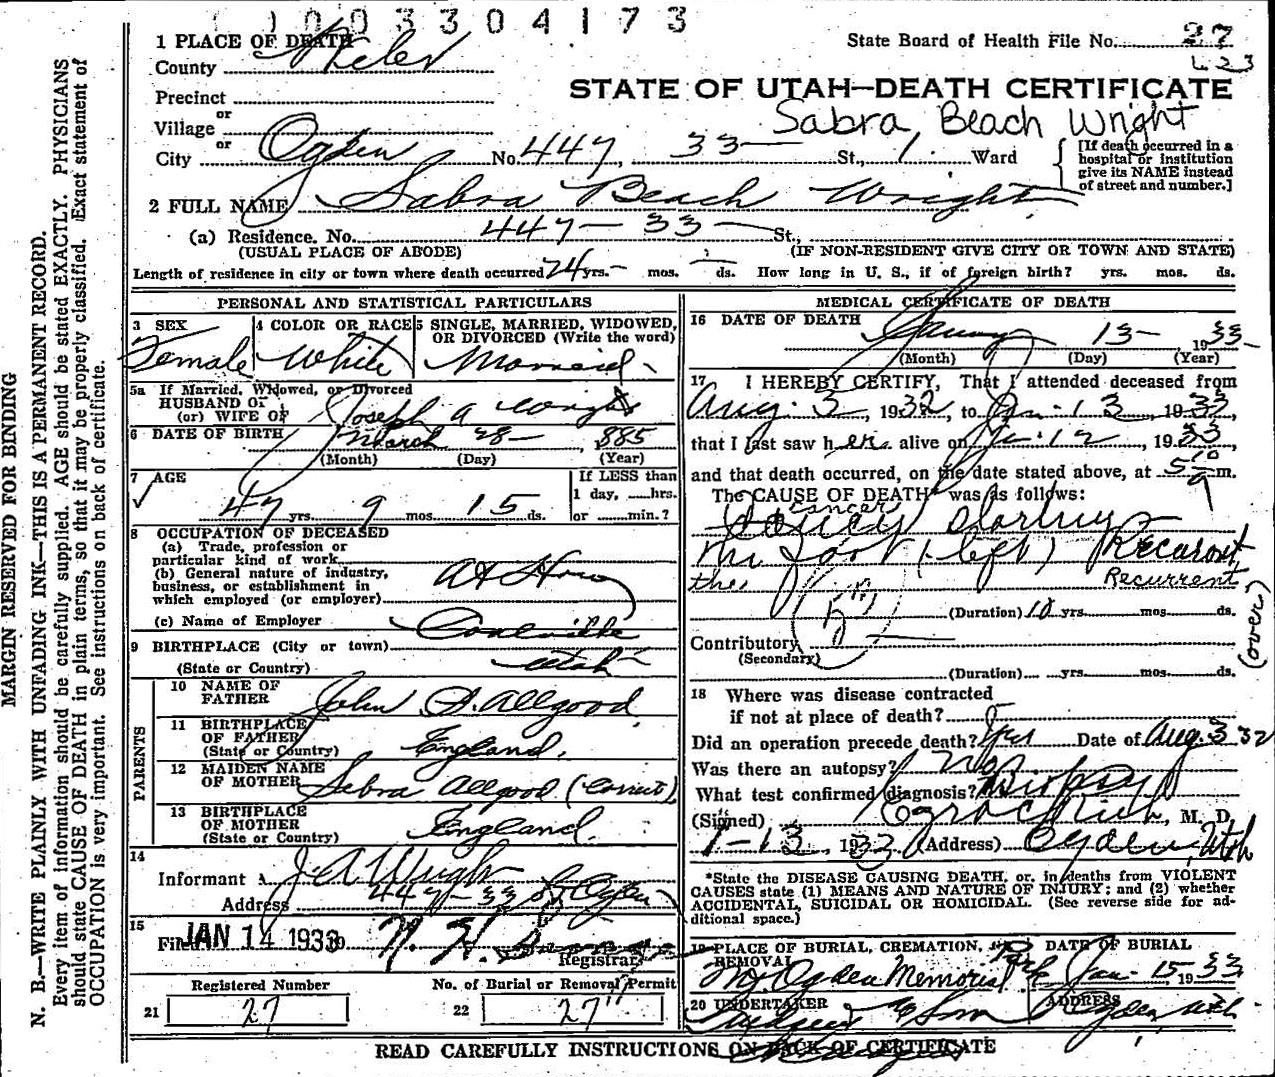 1003304173
1 PLACE OF DEATH
State Board of Health File No. 27
L23
County Weber
STATE OF UTAH—DEATH CERTIFICATE
Precinct
or
Village
Sabra Beach Wright
or
City Ogden No. 447, 33 St., 1. Ward
[If death occurred in a hospital or institution give its NAME instead of street and number.]
2 FULL NAME Sabra Beach Wright
(a) Residence. No. 447 - 33 St.,
(USUAL PLACE OF ABODE) (IF NON-RESIDENT GIVE CITY OR TOWN AND STATE)
Length of residence in city or town where death occurred 24 yrs. - mos. - ds. How long in U. S., if of foreign birth? yrs. mos. ds.
PERSONAL AND STATISTICAL PARTICULARS
3 SEX Female
4 COLOR OR RACE White
5 SINGLE, MARRIED, WIDOWED, OR DIVORCED (Write the word) Married
5a If Married, Widowed, or Divorced
HUSBAND OF
(or) WIFE OF Joseph A Wright
6 DATE OF BIRTH March 28 - 1885
(Month) (Day) (Year)
7 AGE
47 yrs. 9 mos. 15 ds.
If LESS than
1 day, hrs.
or min.?
8 OCCUPATION OF DECEASED
(a) Trade, profession or
particular kind of work
(b) General nature of industry,
business, or establishment in
which employed (or employer)
At Home
(c) Name of Employer
9 BIRTHPLACE (City or town) Coalville
(State or Country) Utah
PARENTS
10 NAME OF FATHER John S. Allgood
11 BIRTHPLACE OF FATHER (State or Country) England.
12 MAIDEN NAME OF MOTHER Sebra Allgood (Correct)
13 BIRTHPLACE OF MOTHER (State or Country) England.
14
Informant J. A Wright
Address 447 - 33 St Ogden
15
Filed JAN 14 1933
Registrar
Registered Number
21 27
No. of Burial or Removal Permit
22 27
MEDICAL CERTIFICATE OF DEATH
16 DATE OF DEATH January 13 - 1933
(Month) (Day) (Year)
17 I HEREBY CERTIFY, That I attended deceased from
Aug. 3 1932, to Jan. 13 1933,
that I last saw her alive on Jan. 12 1933
and that death occurred, on the date stated above, at 5 10 a m.
The CAUSE OF DEATH* was as follows:
Cancer
Cancer starting
in foot (left) Recurrent
the Recurrent
(Duration) 10 yrs. mos. ds.
Contributory
(Secondary)
(over)
(Duration) yrs. mos. ds.
18 Where was disease contracted
if not at place of death?
Did an operation precede death? Yes Date of Aug. 3 32
Was there an autopsy? No
What test confirmed diagnosis? Biopsy
(Signed) M. D.
1-13, 1933 (Address) Ogden, Utah
*State the DISEASE CAUSING DEATH, or, in deaths from VIOLENT
CAUSES state (1) MEANS AND NATURE OF INJURY; and (2) whether
ACCIDENTAL, SUICIDAL OR HOMICIDAL. (See reverse side for ad-
ditional space.)
19 PLACE OF BURIAL, CREMATION, OR REMOVAL
Mt. Ogden Memorial Park
DATE OF BURIAL
Jan. 15, 1933
20 UNDERTAKER & Son
ADDRESS Ogden, Utah
READ CAREFULLY INSTRUCTIONS ON BACK OF CERTIFICATE
MARGIN RESERVED FOR BINDING
N. B.—WRITE PLAINLY WITH UNFADING INK—THIS IS A PERMANENT RECORD.
Every item of information should be carefully supplied. AGE should be stated EXACTLY. PHYSICIANS
should state CAUSE OF DEATH in plain terms, so that it may be properly classified. Exact statement of
OCCUPATION is very important. See instructions on back of certificate.